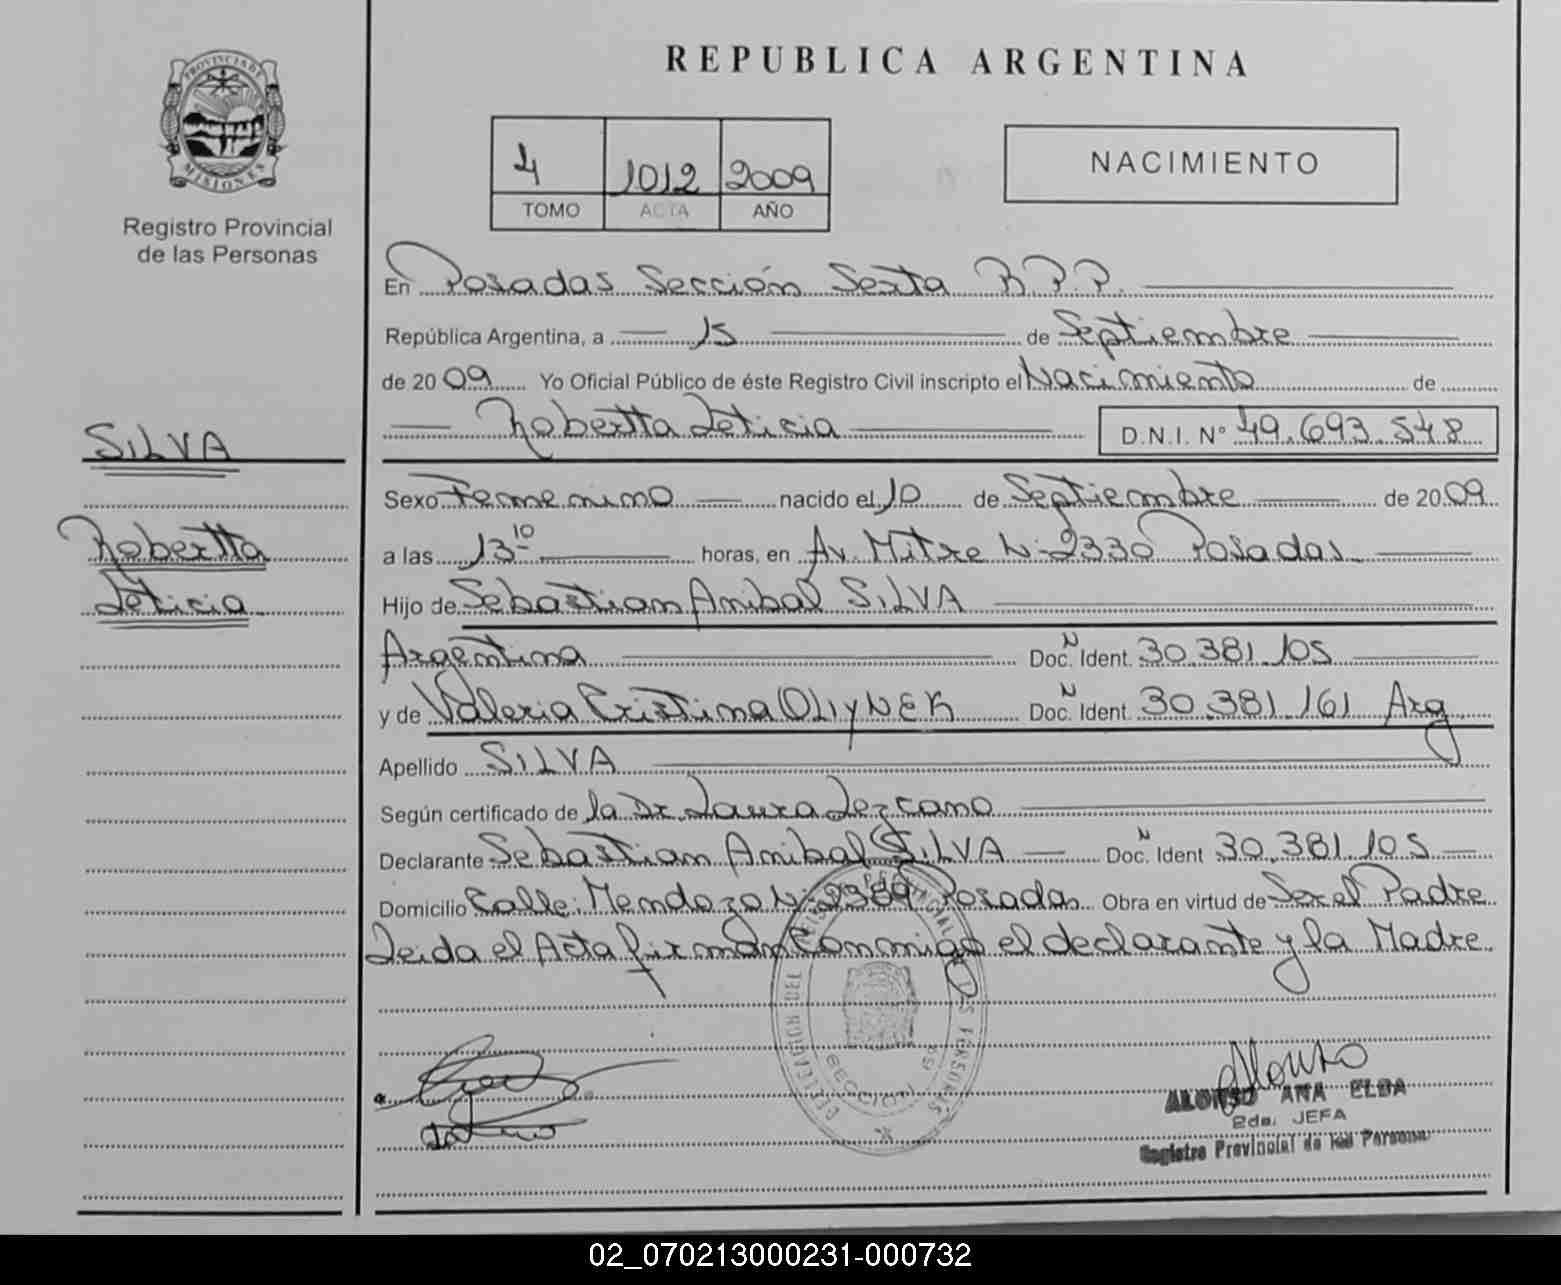 PROVINCIA DE
MISIONES
Registro Provincial
de las Personas
SILVA
Robertta
Leticia
REPUBLICA ARGENTINA
4 1012 2009
TOMO ACTA AÑO
NACIMIENTO
En Posadas Sección Sexta R.P.P.
República Argentina, a 15 de Septiembre
de 2009 Yo Oficial Público de éste Registro Civil inscripto el Nacimiento de
Robertta Leticia D.N.I. N° 49.693.548
Sexo Femenino nacido el 10 de Septiembre de 2009
a las 13 10 horas, en Av. Mitre N: 2330 Posadas
Hijo de Sebastian Anibal SILVA
Argentina Doc. N Ident. 30.381.105
y de Valeria Cristina OLIYNEK Doc. N Ident. 30.381.161 Arg
Apellido SILVA
Según certificado de la Dr. Laura Lezcano
Declarante Sebastian Anibal SILVA Doc. N Ident 30.381.105
Domicilio Calle: Mendoza N: 2389 Posadas Obra en virtud de Ser el Padre
Leida el Acta firman Conmigo el declarante y la Madre
DELEGACION DEL REGISTRO PROVINCIAL DE LAS PERSONAS
SECCION 6ª
Alonso
ALONSO ANA ELBA
2da. JEFA
Registro Provincial de las Personas
02_070213000231-000732